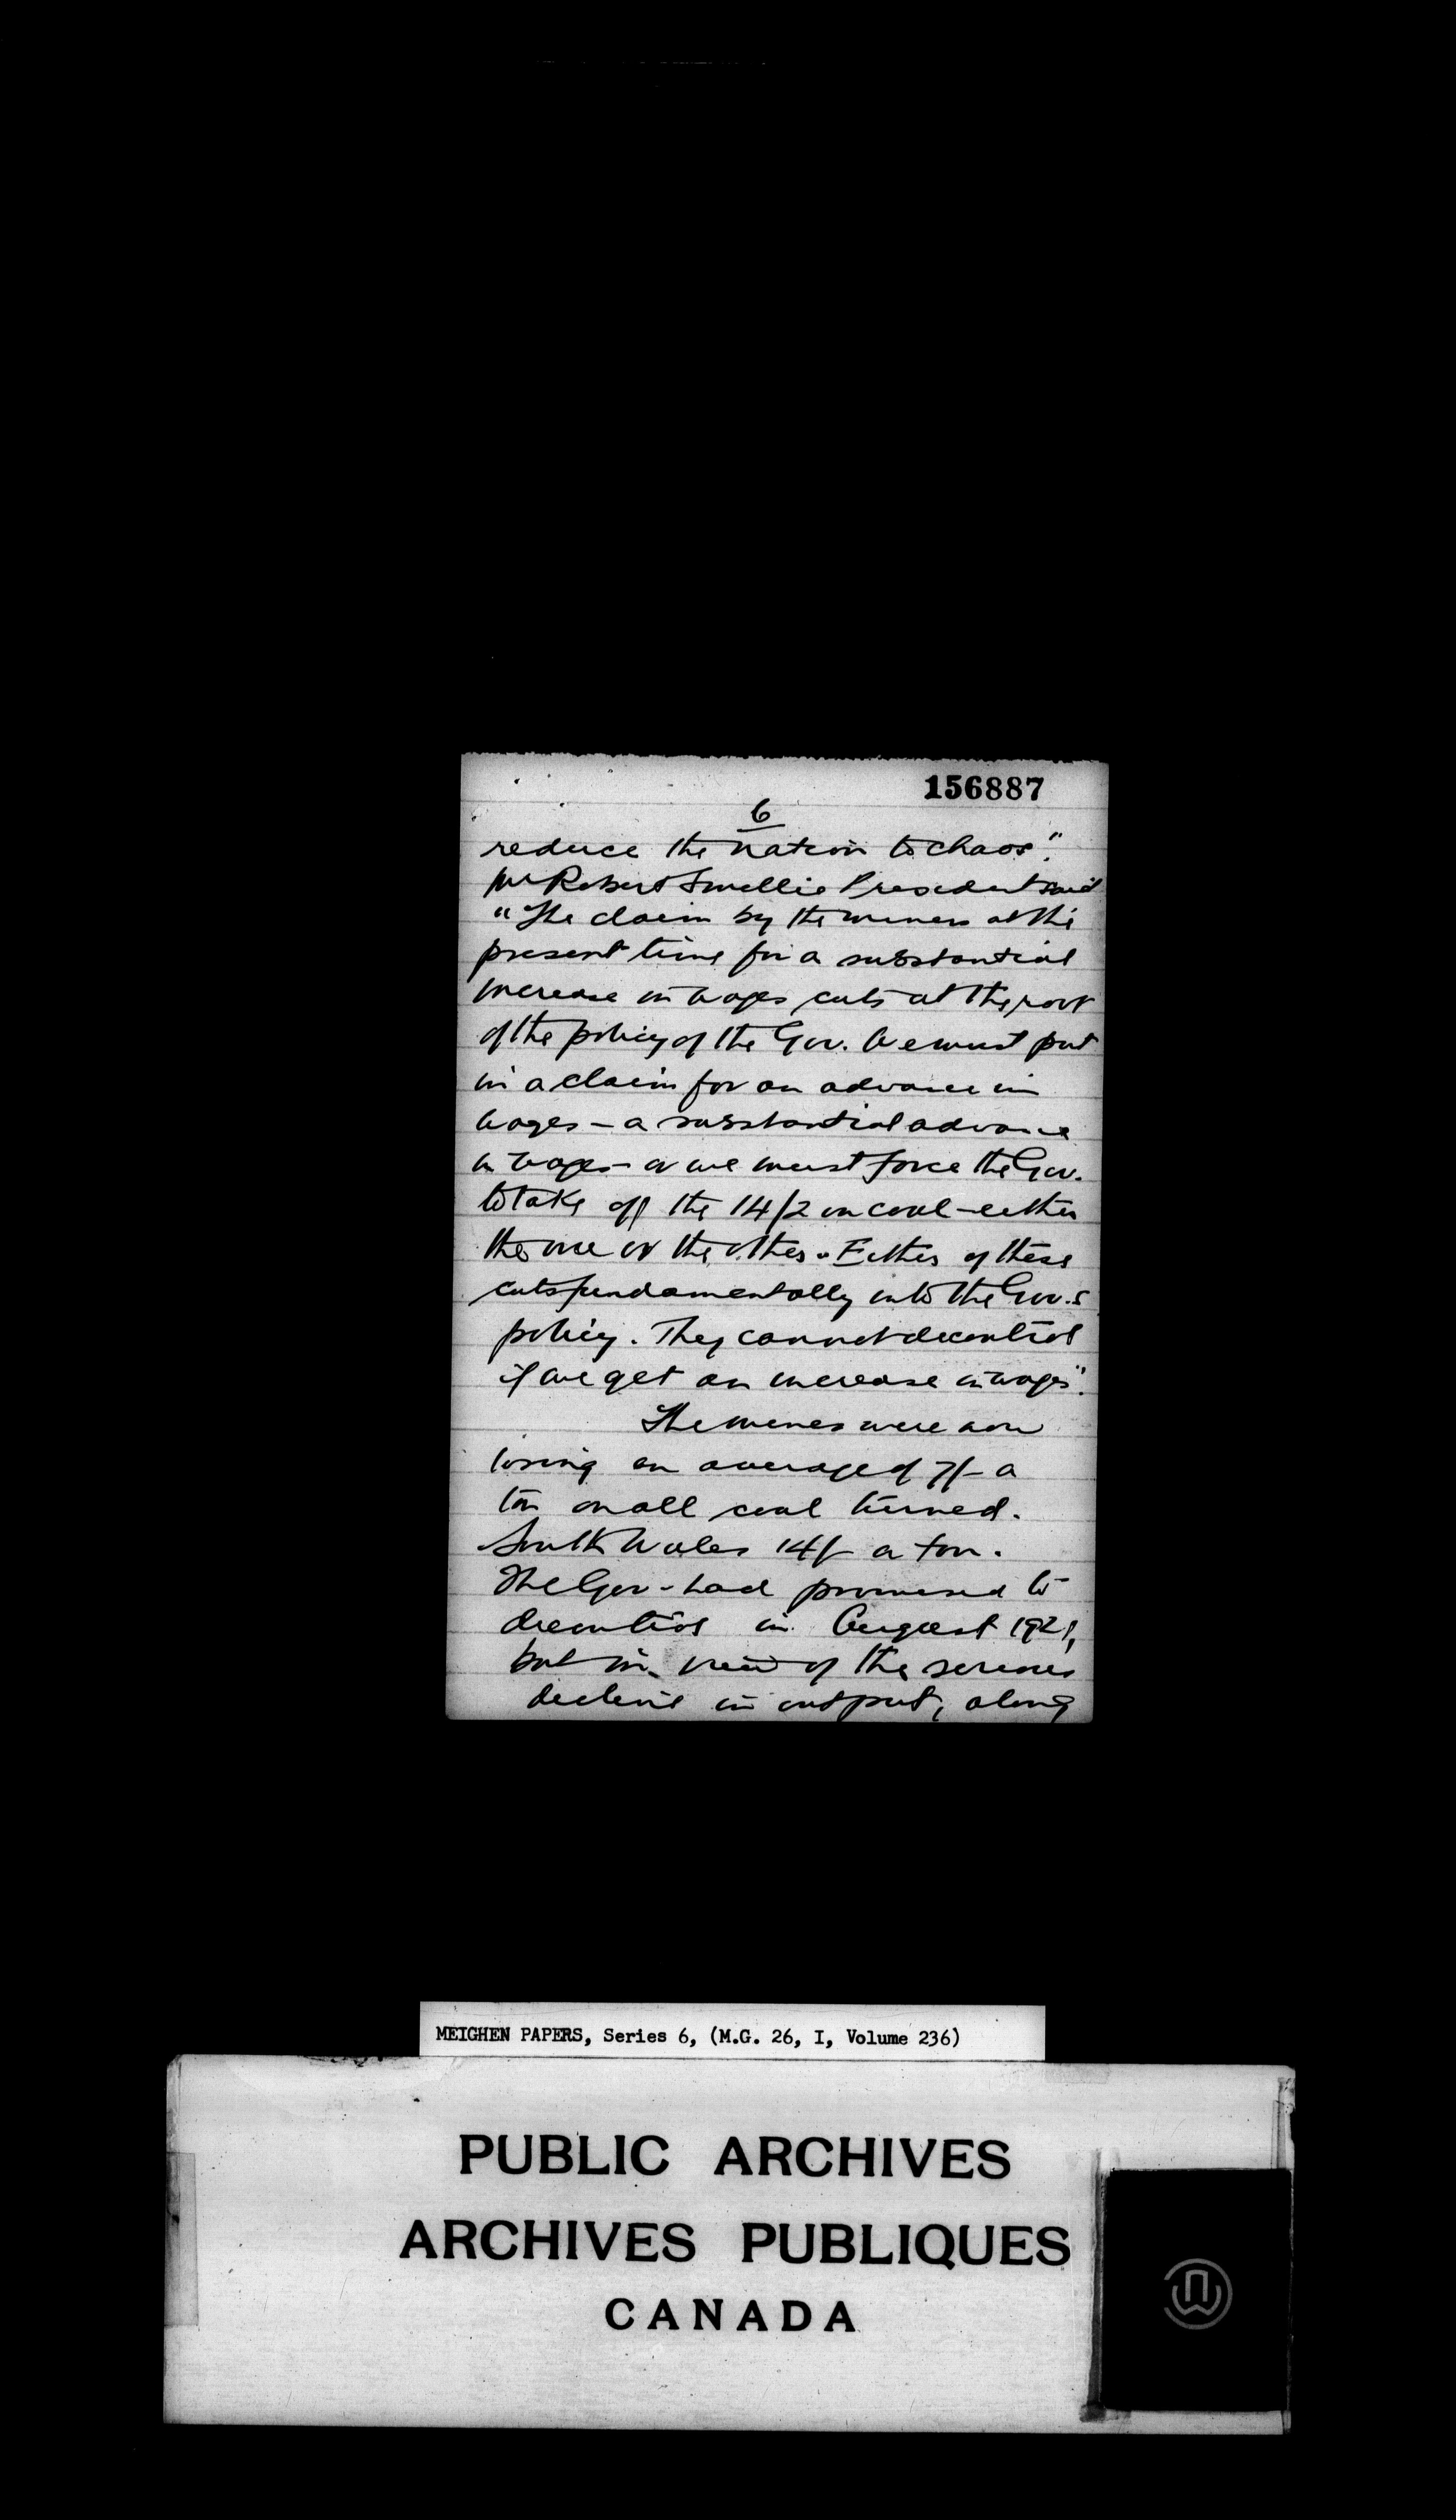 156887
6
reduce the nation to chaos".
Mr Robert Smellie President said
"The claim by the miners at the
present time for a substantial
increase in wages cuts at the root
of the policy of the Gov. We must put
in a claim for an advance in
wages - a substantial advance
in wages - or we must force the Gov.
to take off the 14/2 on coal - either
the one or the other. Either of these
cuts fundamentally into the Gov.s
policy. They cannot decontrol
if we get an increase in wages".
The mines were now
losing an average of 7/- a
ton on all coal turned.
South Wales 14/- a ton.
The Gov - had promised to
decontrol in August 1921,
but in view of the serious
decline in output, along
MEIGHEN PAPERS, Series 6, (M.G. 26, I, Volume 236)
PUBLIC ARCHIVES
ARCHIVES PUBLIQUES
CANADA